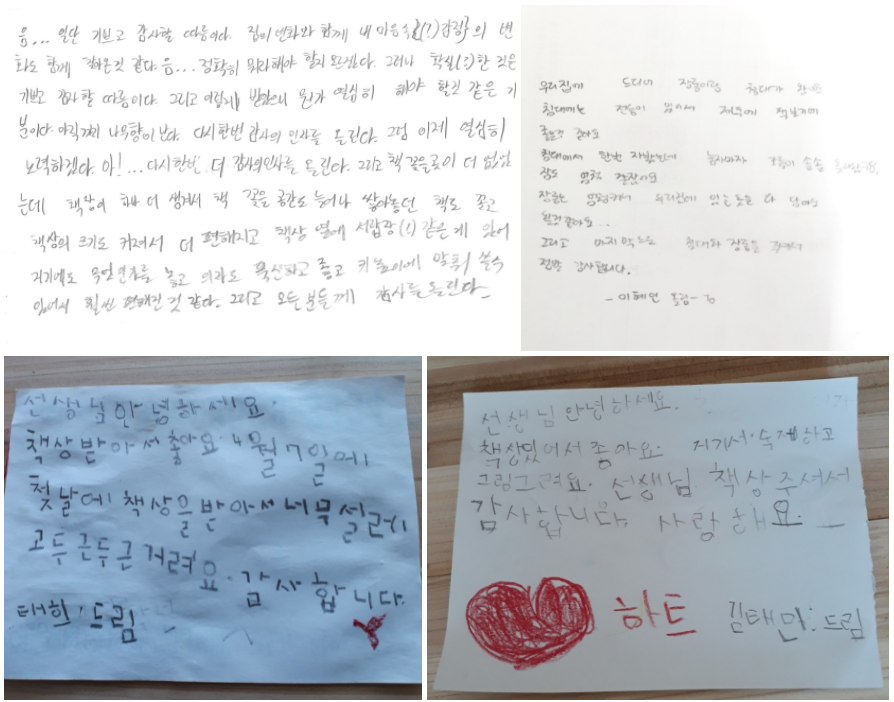 음... 일단 기쁘고 감사할 따름이다. 집의 변화와 함께 내 마음속{(?)감정}의 변
화도 함께 찾아온것 같다. 음... 정확히 뭐라해야 할지 모르겠다. 그러나 확실(?)한 것은
기쁘고 감사할 따름이다. 그리고 이렇게 받았으니 뭔가 열심히 해야 할것 같은 기
분이다. 아직까지 나무향이 난다. 다시한번 감사의 인사를 올린다. 그럼 이제 열심히
노력하겠다. 아!... 다시한번 더 감사의인사를 올린다. 그리고 책 꽂을곳이 더 없었
는데 책장이 하나 더 생겨서 책 꽂을 공간도 늘어나 쌓아놓던 책도 꽂고
책상의 크기도 커져서 더 편해지고 책상 옆에 서랍장(?) 같은게 있어
저기에도 물건을 놓고 의자도 푹신하고 좋고 키 높이에 맞춰 쓸수
있어서 훨씬 편해진 것 같다. 그리고 모든분들께 감사를올린다_
우리집에 드디어 장롱이랑 침대가 왔어요
침대에는 전등이 있어서 저녁에 책보기에
좋은것 같아요
침대에서 한번 자봤는데 눕자마자 잠이 솔솔
잠도 엄청 잘잤어요
장롱은 엄청커서 우리집에 있는 옷을 다 담아도
될것같아요..
그리고 마지막으로 침대와 장롱을 주셔서
정말 감사합니다.
-이혜인 올림-
선생님 안녕하세요.
책상 받아서 좋아요. 4월 7일에
첫날에 책상을 받아서 너무 설레
고 두근두근 거려요. 감사합니다.
태희. 드림
선생님 안녕하세요.
책상있어서 좋아요. 저기서 숙제하고
그림그려요. 선생님 책상 주셔서
감사합니다 사랑해요.
하트 김태민. 드림